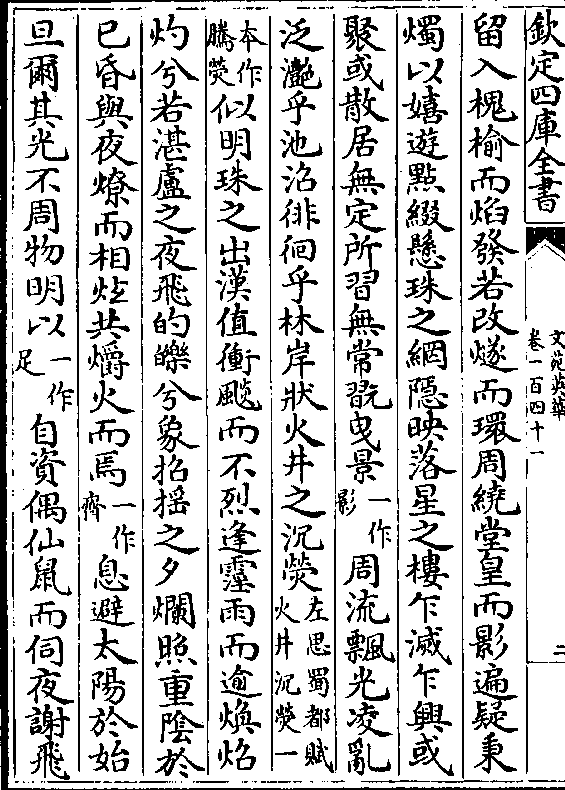 欽定四庫全書
文苑英華
卷一百四十一
二
留入槐榆而焰發若改燧而環周繞堂皇而影遍疑秉
燭以嬉遊點綴懸珠之網隱映落星之樓乍滅乍興或
聚或散居無定所習無常翫曳景一作影周流飄光凌亂
泛灔乎池沼徘徊乎林岸狀火井之沉熒左思蜀都賦火井沉熒一
本作騰熒似明珠之出漢值衝飈而不烈逢霪雨而逾煥焰
灼兮若湛盧之夜飛的皪兮象招搖之夕爛照重陰於
已昏與夜燎而相炫共爝火而焉一作齊息避太陽於始
旦爾其光不周物明以一作足自資偶仙鼠而伺夜謝飛